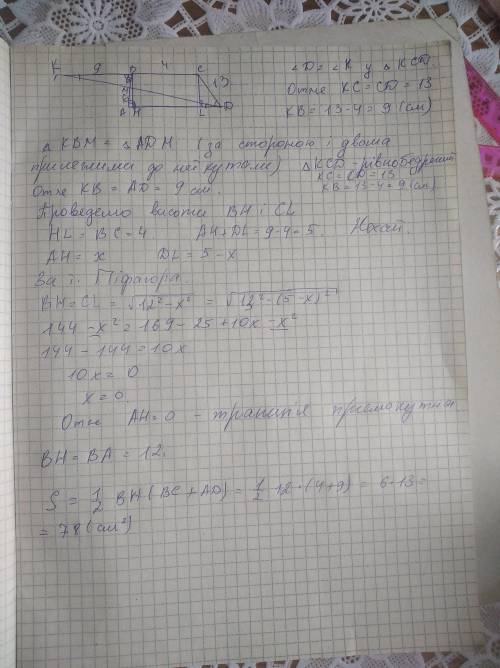 K 9 B 4 C
13
A H L D
∠D = ∠K у △KCD.
Отже KC = CD = 13
KB = 13-4 = 9 (см)
△KBM = △ADM (за стороною і двома
прилеглими до неї кутами)
△KCD - рівнобедрений
KC = CD = 13
KB = 13-4 = 9 (см)
Отже KB = AD = 9 см.
Проведемо висоти BH і CL
HL = BC = 4 AH+DL = 9-4 = 5. Нехай
AH = x DL = 5-x
За т. Піфагора.
BH = CL = √12²-x² = √13²-(5-x)²
144-x² = 169-25+10x-x²
144-144 = 10x
10x = 0
x = 0.
Отже AH = 0 - трапеція прямокутна.
BH = BA = 12.
S = 1/2 BH (BC + AD) = 1/2 · 12 · (4+9) = 6·13 =
= 78 (см²)